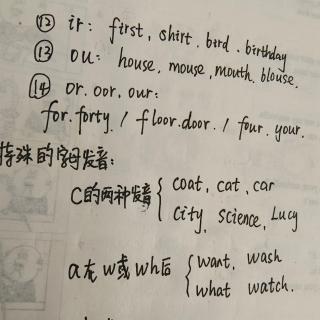 ⑫ ir: first, shirt, bird, birthday
⑬ ou: house, mouse, mouth, blouse.
⑭ or. oor. our:
for. forty. / floor. door. / four. your.
特殊的字母发音:
C的两种发音 { coat, cat, car
city, science, Lucy
a在w或wh后 { want, wash
what watch.